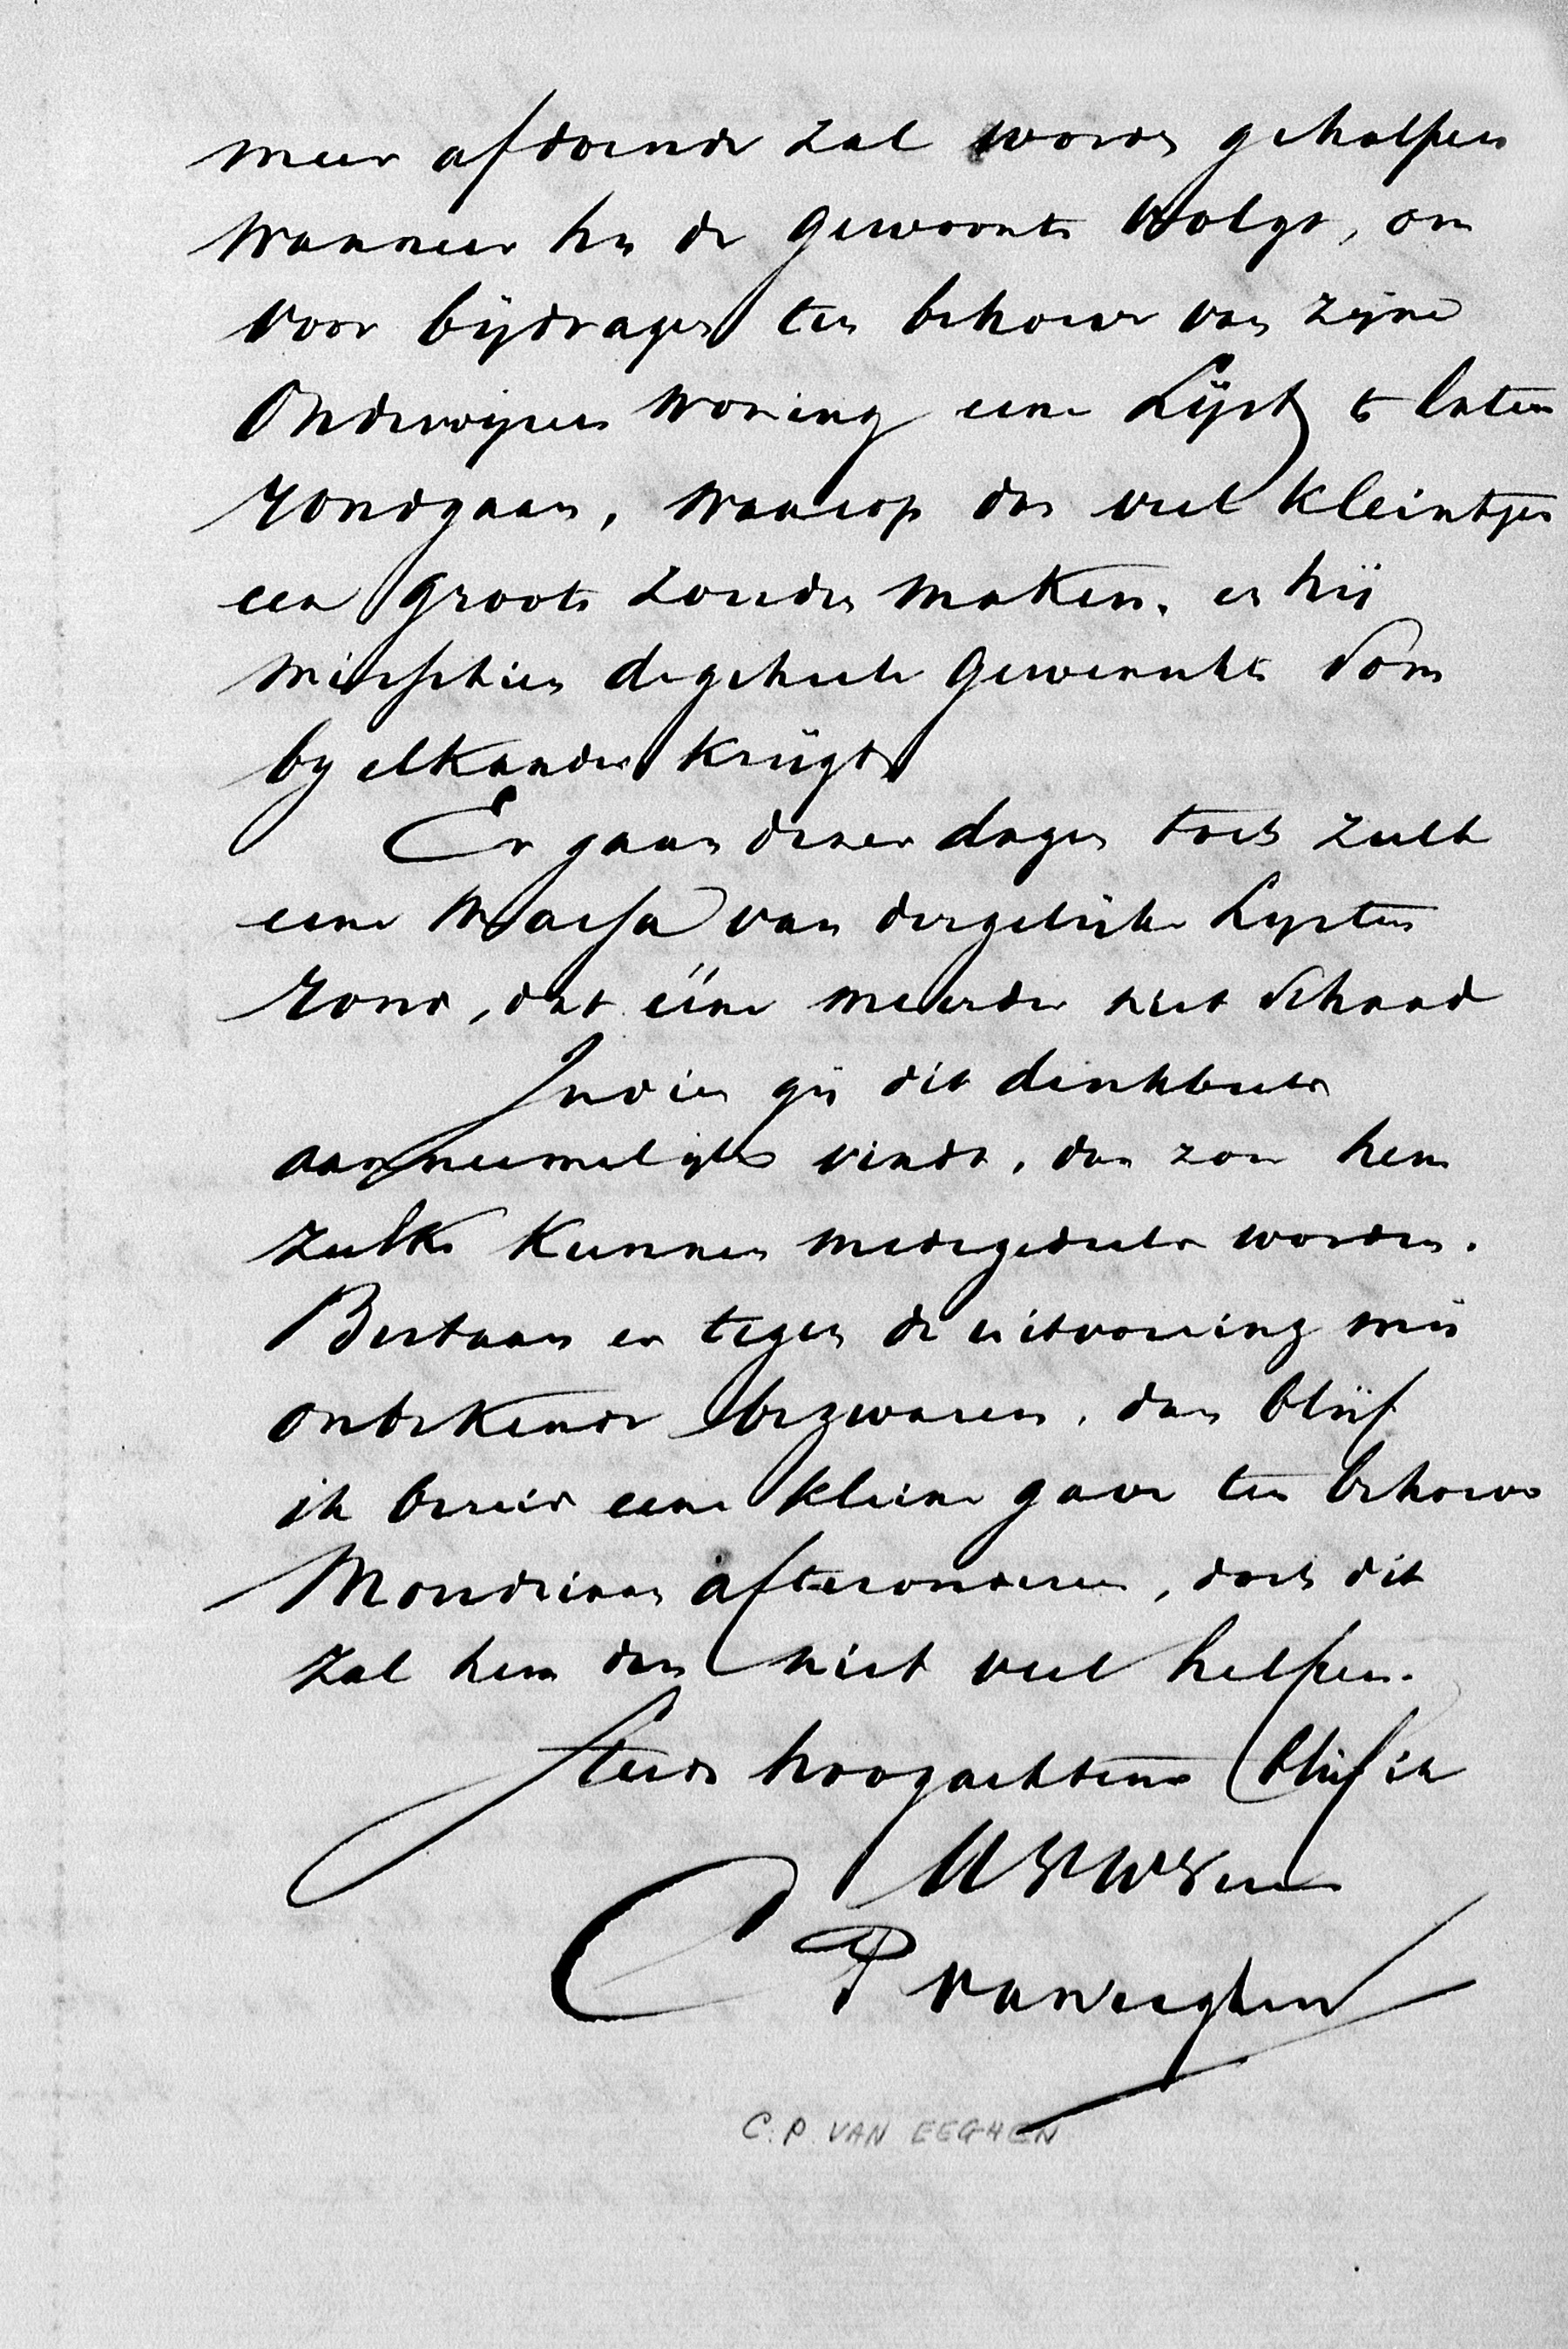 meer afdoende zal worden geholpen
wanneer hij de gewoonte volgt, om
voor bijdragen ten behoeve van zijne
Onderwijzers woning eene Lijst te laten
rondgaan, waarop dan veel kleintjes
een groote zouden maken, en hij
misschien de geheele gewenschte Som
by elkander krijgt
Er gaan dezer dagen toch zulk
eene Massa van dergelijke Lysten
rond, dat ééne meerder niet schaad
Indien gij dit denkbeeld
aannemelijk vindt, dan zou hem
zulks kunnen medegedeeld worden.
Bestaan er tegen de uitvoering mij
onbekende bezwaren, dan blijf
ik bereid eene kleine gave ten behoeve
Mondriaan afteronderen, doch dit
zal hem dan niet veel helpen.
Steeds hoogachtend blijf ik
UEdWDr
C P van Eeghen
C. P. VAN EEGHEN